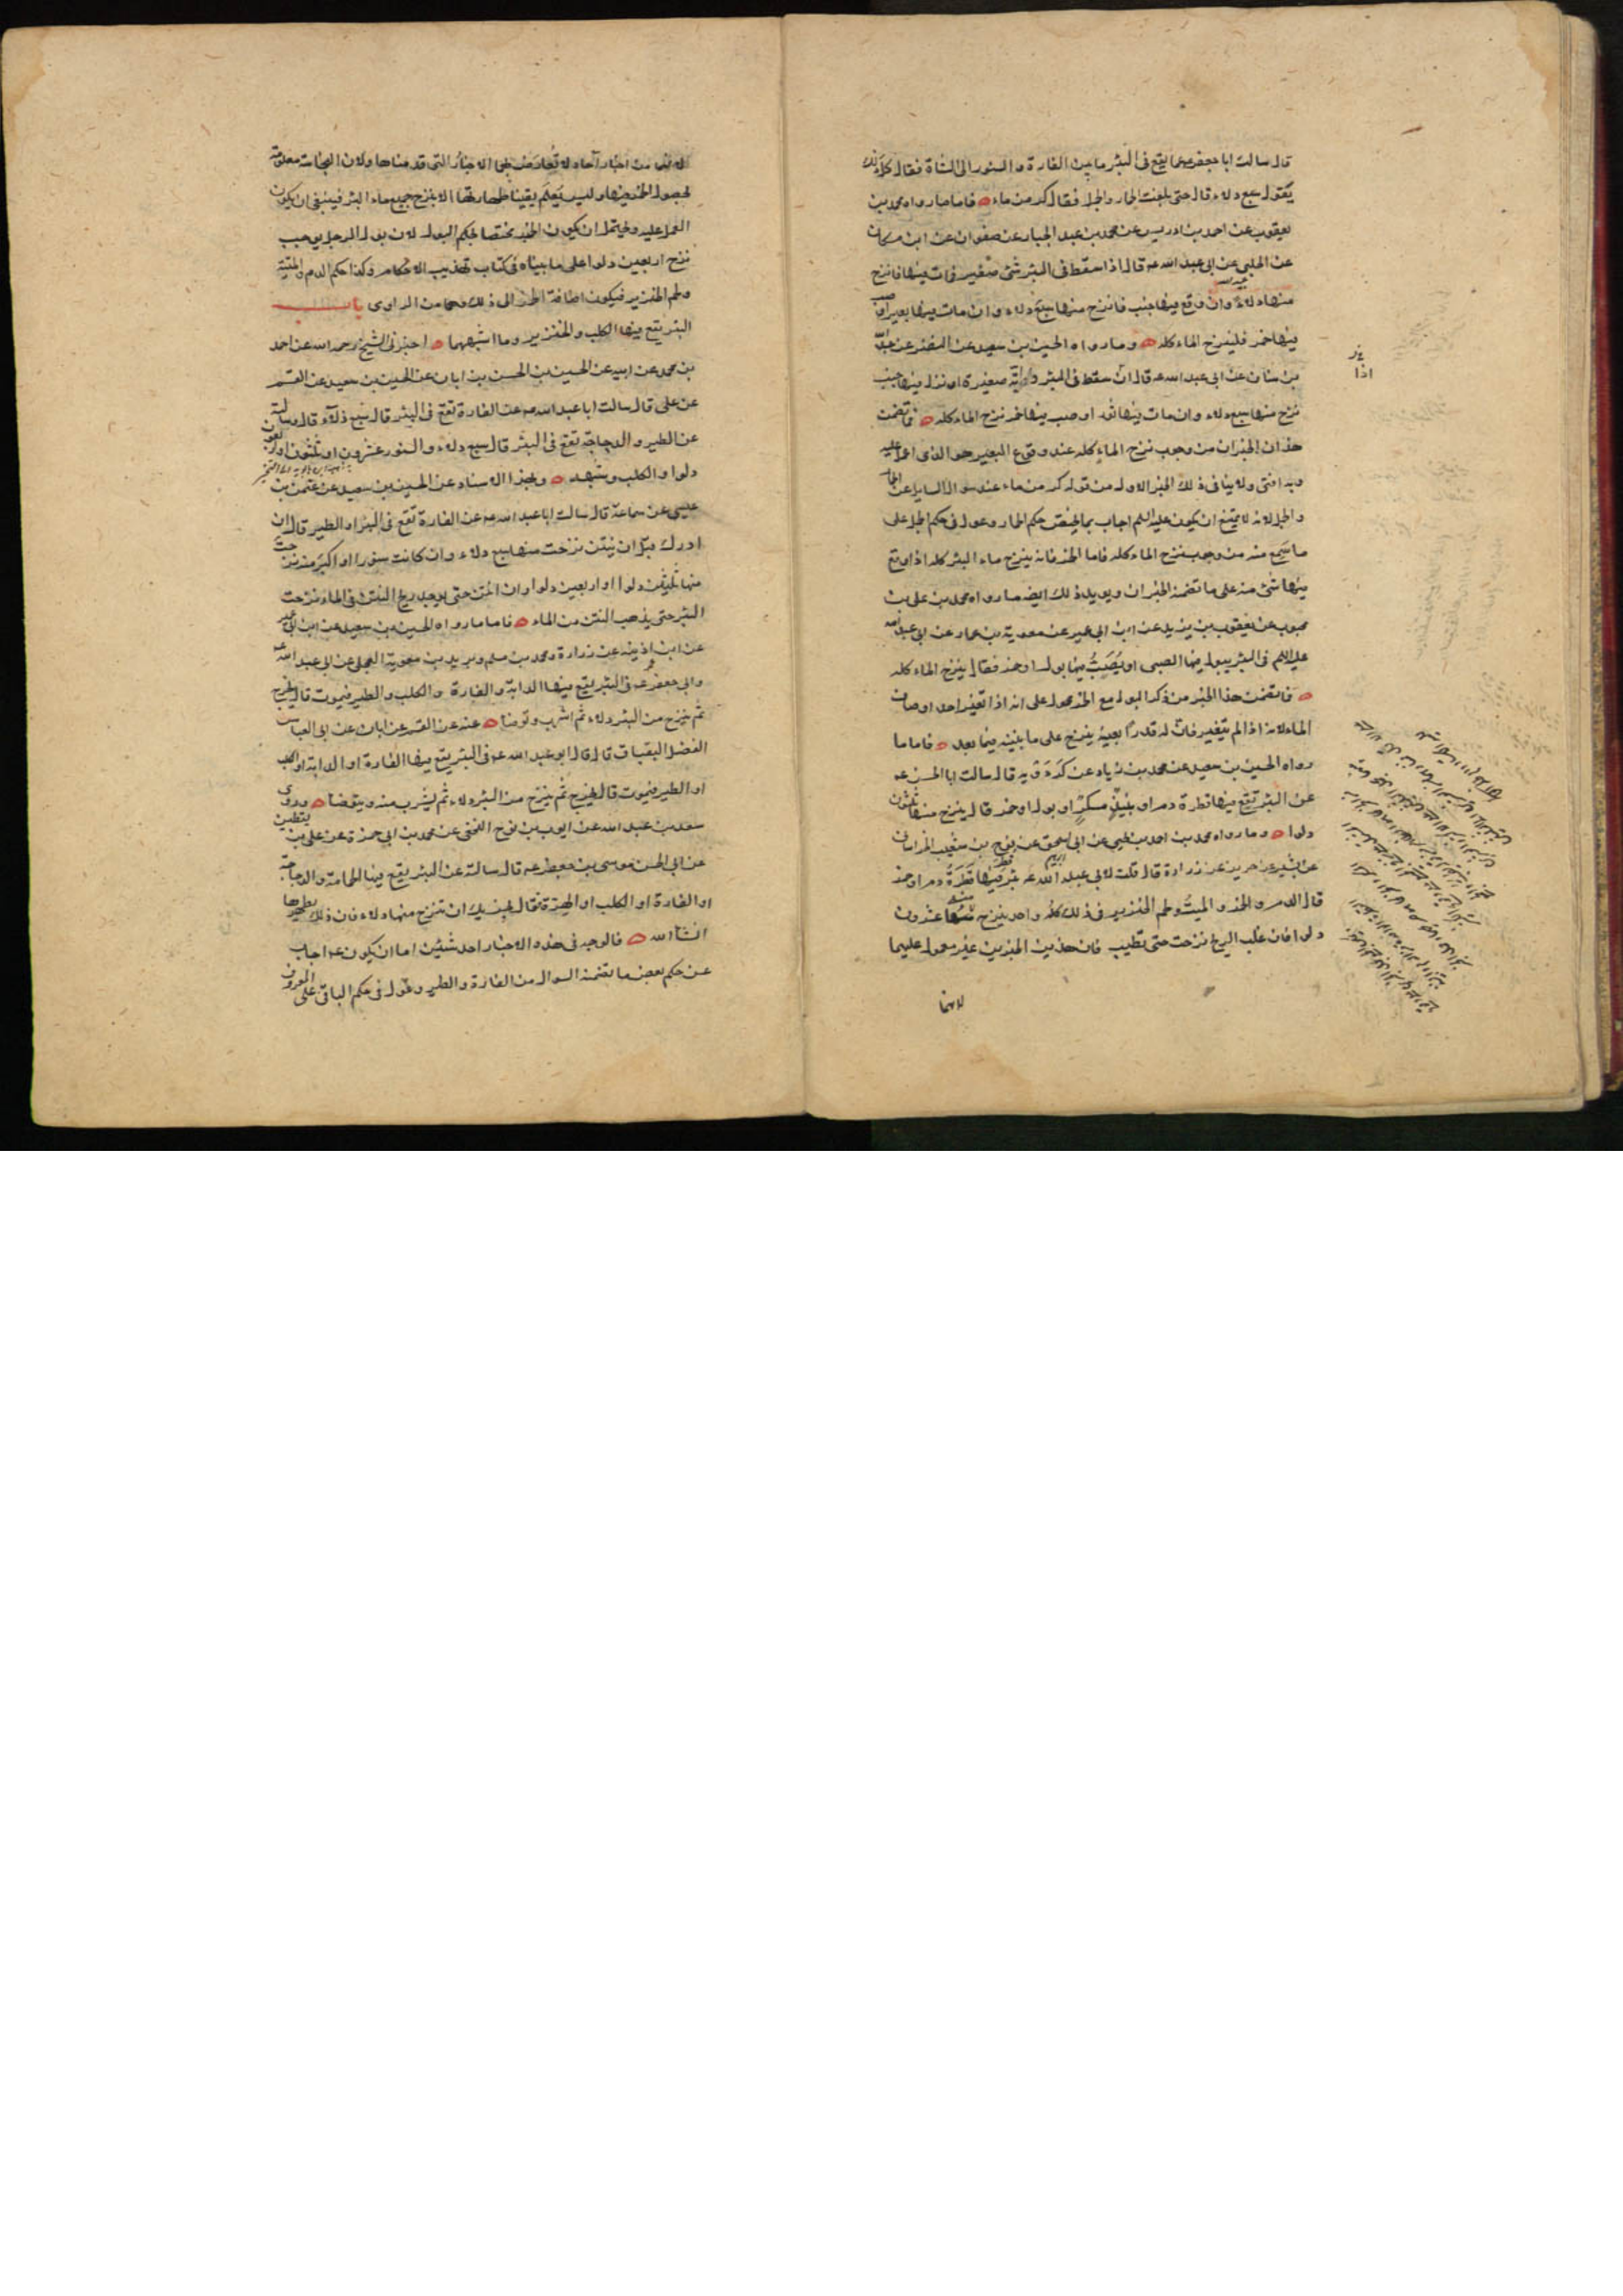 قال سالت ابا جعفر عما يقع فى البئر ما بين الفارة والسنور الى الشاة فقال كل ذلك
يقول سبع دلاء قال حتى بلغت الحمار والجمل فقال كر من ماء فاما ما رواه محمد بن
يعقوب عن احمد بن ادريس عن محمد بن عبد الجبار عن صفوان عن ابن مسكان
عن الحلبى عن ابى عبد الله عه قال اذا سقط فى البئر شئ صغير فمات فيها فانزح
منها دلاء وان وقع فيها جنب فانزح منها سبع دلاء وان مات فيها بعير او صب
فيها خمر فلينزح الماء كله وما رواه الحسين بن سعيد عن النضر عن عبد الله
بن سنان عن ابى عبد الله عه قال ان سقط فى البئر دابة صغيرة او نزل فيها جنب
نزح منها سبع دلاء وان مات فيها ثور او صب فيها خمر نزح الماء كله فما تضمن
هذان الخبران من وجوب نزح الماء كله عند وقوع البعير هو الذى اعمل عليه
وبه افتى ولا ينافى ذلك الخبر الاول من قوله كر من ماء عند سوال السايل عن الحمار
والجمل لانه لا يمتنع ان يكون عليه السلم اجاب بما يختص حكم الحمار وعول فى حكم الجمل على
ما سمع منه من وجوب نزح الماء كله فاما الخمر فانه ينزح ماء البئر كله اذا وقع
فيها شئ منه على ما تضمنه الخبران ويويد ذلك ايضا ما رواه محمد بن على بن
محبوب عن يعقوب بن يزيد عن ابن ابى عمير عن معوية بن عمار عن ابى عبد الله
عليه السلم فى البئر يبول فيها الصبى او يصب فيها بول او خمر فقال ينزح الماء كله
فما تضمن هذا الخبر من ذكر البول مع الخمر محمول على انه اذا تغير احد اوصاف
الماء لانه اذا لم يتغير فان له قدرا بعينه ينزح على ما نبينه فيما بعد فاما ما
رواه الحسين بن سعيد عن محمد بن زياد عن كردويه قال سالت ابا الحسن عه
عن البئر تقع فيها قطرة دم او نبيذ مسكر او بول او خمر قال ينزح منها ثلثون
دلوا وما رواه محمد بن احمد بن يحيى عن ابى اسحق عن نوح بن شعيب الخراسانى
عن بشير عن حريز عن زرارة قال قلت لابى عبد الله عه بئر قطر فيها قطرة دم او خمر
قال الدم والخمر والميت ولحم الخنزير فى ذلك كله واحد ينزح منها عشرون
دلوا فان غلب الريح نزحت حتى تطيب فان هذين الخبرين غير معمول عليهما
لانهما
لانهما من اخبار آحاد لا تعارض بهما الاخبار التى قدمناها ولان النجاسة معلومة
بحصول الخمر فيها وليس يعلم يقينا طهارتها الا بنزح جميع ماء البئر فينبغى ان يكون
العمل عليه ويحتمل ان يكون الخبر مختصا بحكم البول لان بول الرجل يوجب
نزح اربعين دلوا على ما بيناه فى كتاب تهذيب الاحكام وكذا حكم الدم والميتة
ولحم الخنزير فيكون اضافة الخمر الى ذلك وهما من الراوى باب
البئر يقع فيها الكلب والخنزير وما اشبههما اخبرنى الشيخ رحمه الله عن احمد
بن محمد عن ابيه عن الحسين بن الحسن بن ابان عن الحسين بن سعيد عن القسم
عن على قال سالت ابا عبد الله عه عن الفارة تقع فى البئر قال سبع دلاء قال وسالته
عن الطير والدجاجة تقع فى البئر قال سبع دلاء والسنور عشرون او ثلثون او اربعون
دلوا والكلب وشبهه وبهذا الاسناد عن الحسين بن سعيد عن عثمن بن
عيسى عن سماعة قال سالت ابا عبد الله عه عن الفارة تقع فى البئر او الطير قال ان
ادركته قبل ان ينتن نزحت منها سبع دلاء وان كانت سنورا او اكبر منه نزحت
منها ثلثين دلوا او اربعين دلوا وان انتن حتى يوجد ريح النتن فى الماء نزحت
البئر حتى يذهب النتن من الماء فاما ما رواه الحسين بن سعيد عن ابن ابى عمير
عن ابن اذينة عن زرارة ومحمد بن مسلم وبريد بن معوية العجلى عن ابى عبد الله
وابى جعفر عه فى البئر يقع فيها الدابة والفارة والكلب والطير فيموت قال يخرج
ثم ينزح من البئر دلاء ثم اشرب وتوضا عنه عن القسم عن ابان عن ابى العباس
الفضل البقباق قال قال ابو عبد الله عه فى البئر يقع فيها الفارة او الدابة او الكلب
او الطير فيموت قال يخرج ثم ينزح من البئر دلاء ثم يشرب منه ويتوضا وروى
سعد بن عبد الله عن ايوب بن نوح النخعى عن محمد بن ابى حمزة عن على بن يقطين
عن ابى الحسن موسى بن جعفر عه قال سالته عن البئر يقع فيها الحمامة والدجاجة
او الفارة او الكلب او الهرة فقال يجزيك ان تنزح منها دلاء فان ذلك يطهرها
انشاالله فالوجه فى هذه الاخبار احد شيئين اما ان يكون عه اجاب
عن حكم بعض ما تضمنه السوال من الفارة والطير وعول فى حكم الباقى على المعروف